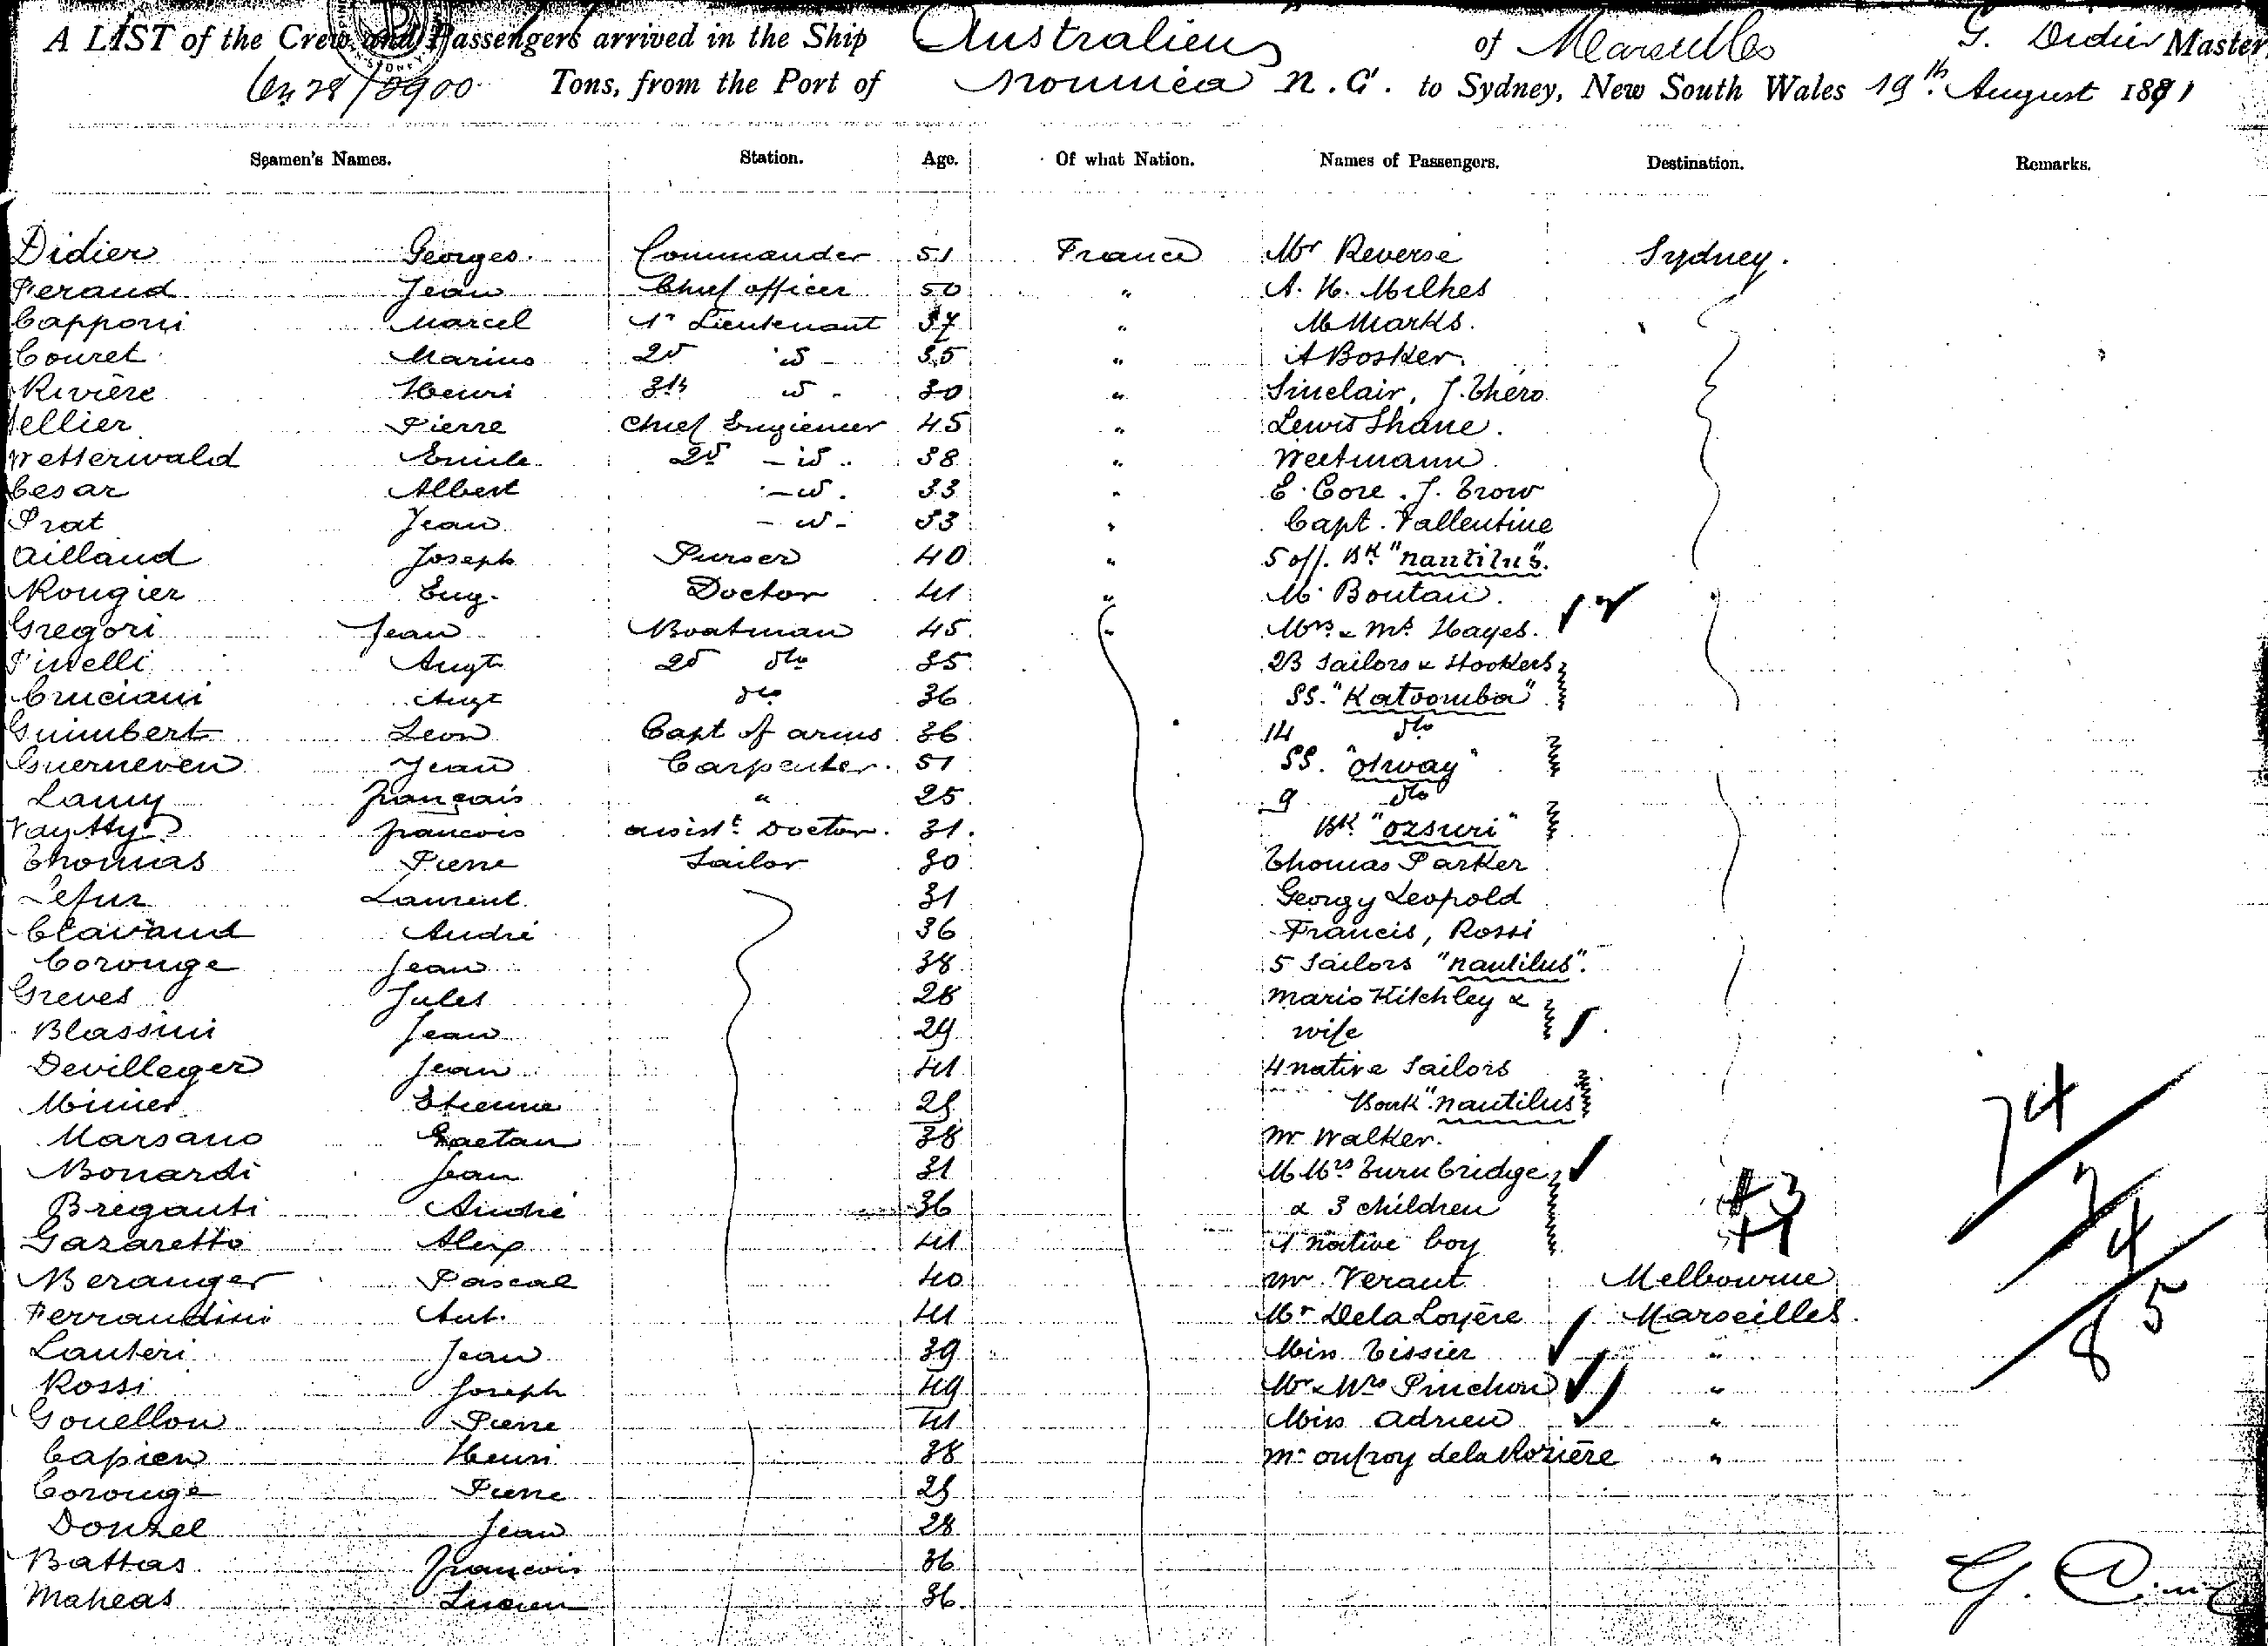 A LIST of the Crew and Passengers arrived in the Ship Australien of Marseilles G. Didier Master
/3900 Tons, from the Port of Nouméa N.C. to Sydney, New South Wales 19th August 1891
Seamen's Names. Station. Age. Of what Nation. Names of Passengers. Destination. Remarks.
Didier Georges Commander 51 France Mr Reverse Sydney.
Feraud Jean Chief officer 50 " A. H. Milhes
Capponi Marcel 1r Lieutenant 37 " M Marks.
Couret Marius 2d id 35 " A Bosker.
Rivière Henri 3th id 30 " Sinclair, J. Théro
Tellier Pierre Chief Engieneer 45 " Lewis Shane.
Wetterwald Emile 2d id 38 " Weetmann
Cesar Albert id 33 " E. Core. J. Trow
Prat Jean id 33 " Capt. Vallentine
Ailland Joseph Purser 40 " 5 off. Bk "Nautilus".
Rougier Eug. Doctor 41 " M. Boutan.
Gregori Jean Boatman 45 " Mrs & Ms Hayes.
Pinelli Augt 2d do 35 23 Sailors & Stookers
Cruciani Augt do 36 SS. "Katoomba"
Guimbert Leon Capt of arms 36 14 do
Guerneven Jean Carpenter. 51 SS. "Otway"
Lamy français " 25 9 do
francois assist. Doctor. 31. Bk "Ozsuri"
Thomas Pierre Sailor 30 Thomas Parker
Lefur Laurent 31 Georgy Leopold
Clavaud André 36 Francis, Rossi
Corouge Jean 38 5 Sailors "Nautilus".
Greves Jules 28 Mario Kitchley &
Blassini Jean 29 wife
Devilleger Jean 41 4 native Sailors
Minier Etienne 25 Bark "Nautilus"
Marsano Gaetan 38 Mr Walker.
Bonardi Jean 31 M Mrs Turnbridge
Briganti André 36 & 3 children +3
Gazaretto Alex 41 1 native boy +1
Beranger Pascal 40 Mr Veraut Melbourne
Ferrandini Ant. 41 Mr De la Loyère Marseilles.
Lauteri Jean 39 Miss Tissier "
Rossi Joseph 49 Mr & Mrs Pinchon "
Gouellou Pierre 41 Miss Adrien "
Capien Henri 38 Mr oufroy de la Rozière "
Corouge Pierre 25
Donzel Jean 28
Battas francois 36
Maheas Lucien 36
74
7
4
8 5
G.